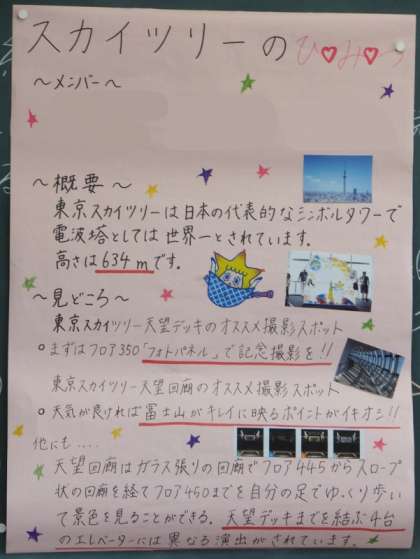 スカイツリーのひ♡み♡つ
～メンバー～
～概要～
東京スカイツリーは日本の代表的なシンボルタワーで
電波塔としては世界一とされています。
高さは634mです。
～見どころ～
東京スカイツリー天望デッキのオススメ撮影スポット
○まずはフロア350「フォトパネル」で記念撮影を!!
東京スカイツリー天望回廊のオススメ撮影スポット
○天気が良ければ富士山がキレイに映るポイントがイチオシ!!
他にも‥‥
天望回廊はガラス張りの回廊でフロア445からスロープ
状の回廊を経てフロア450までを自分の足でゆっくり歩い
て景色を見ることができる。天望デッキまでを結ぶ4台
のエレベーターには異なる演出がされています。